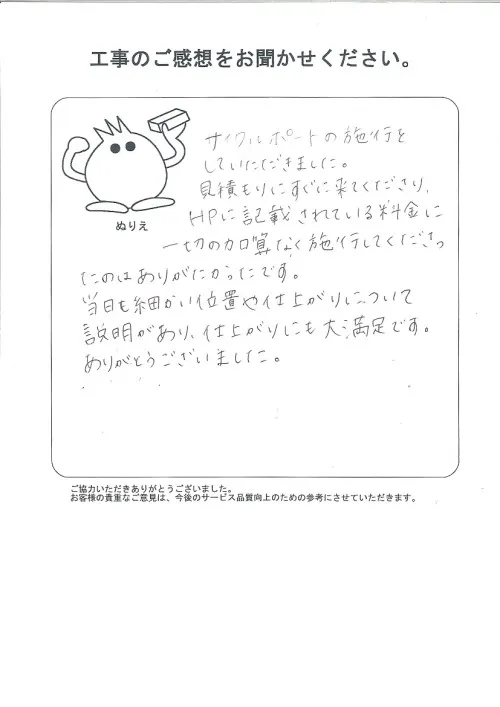 工事のご感想をお聞かせください。
サイクルポートの施行を
していただきました。
見積もりにすぐに来てくださり、
HPに記載されている料金に
ぬりえ
一切の加算なく施行してくださっ
たのはありがたかったです。
当日も細かい位置や仕上がりについて
説明があり、仕上がりにも大満足です。
ありがとうございました。
ご協力いただきありがとうございました。
お客様の貴重なご意見は、今後のサービス品質向上のための参考にさせていただきます。